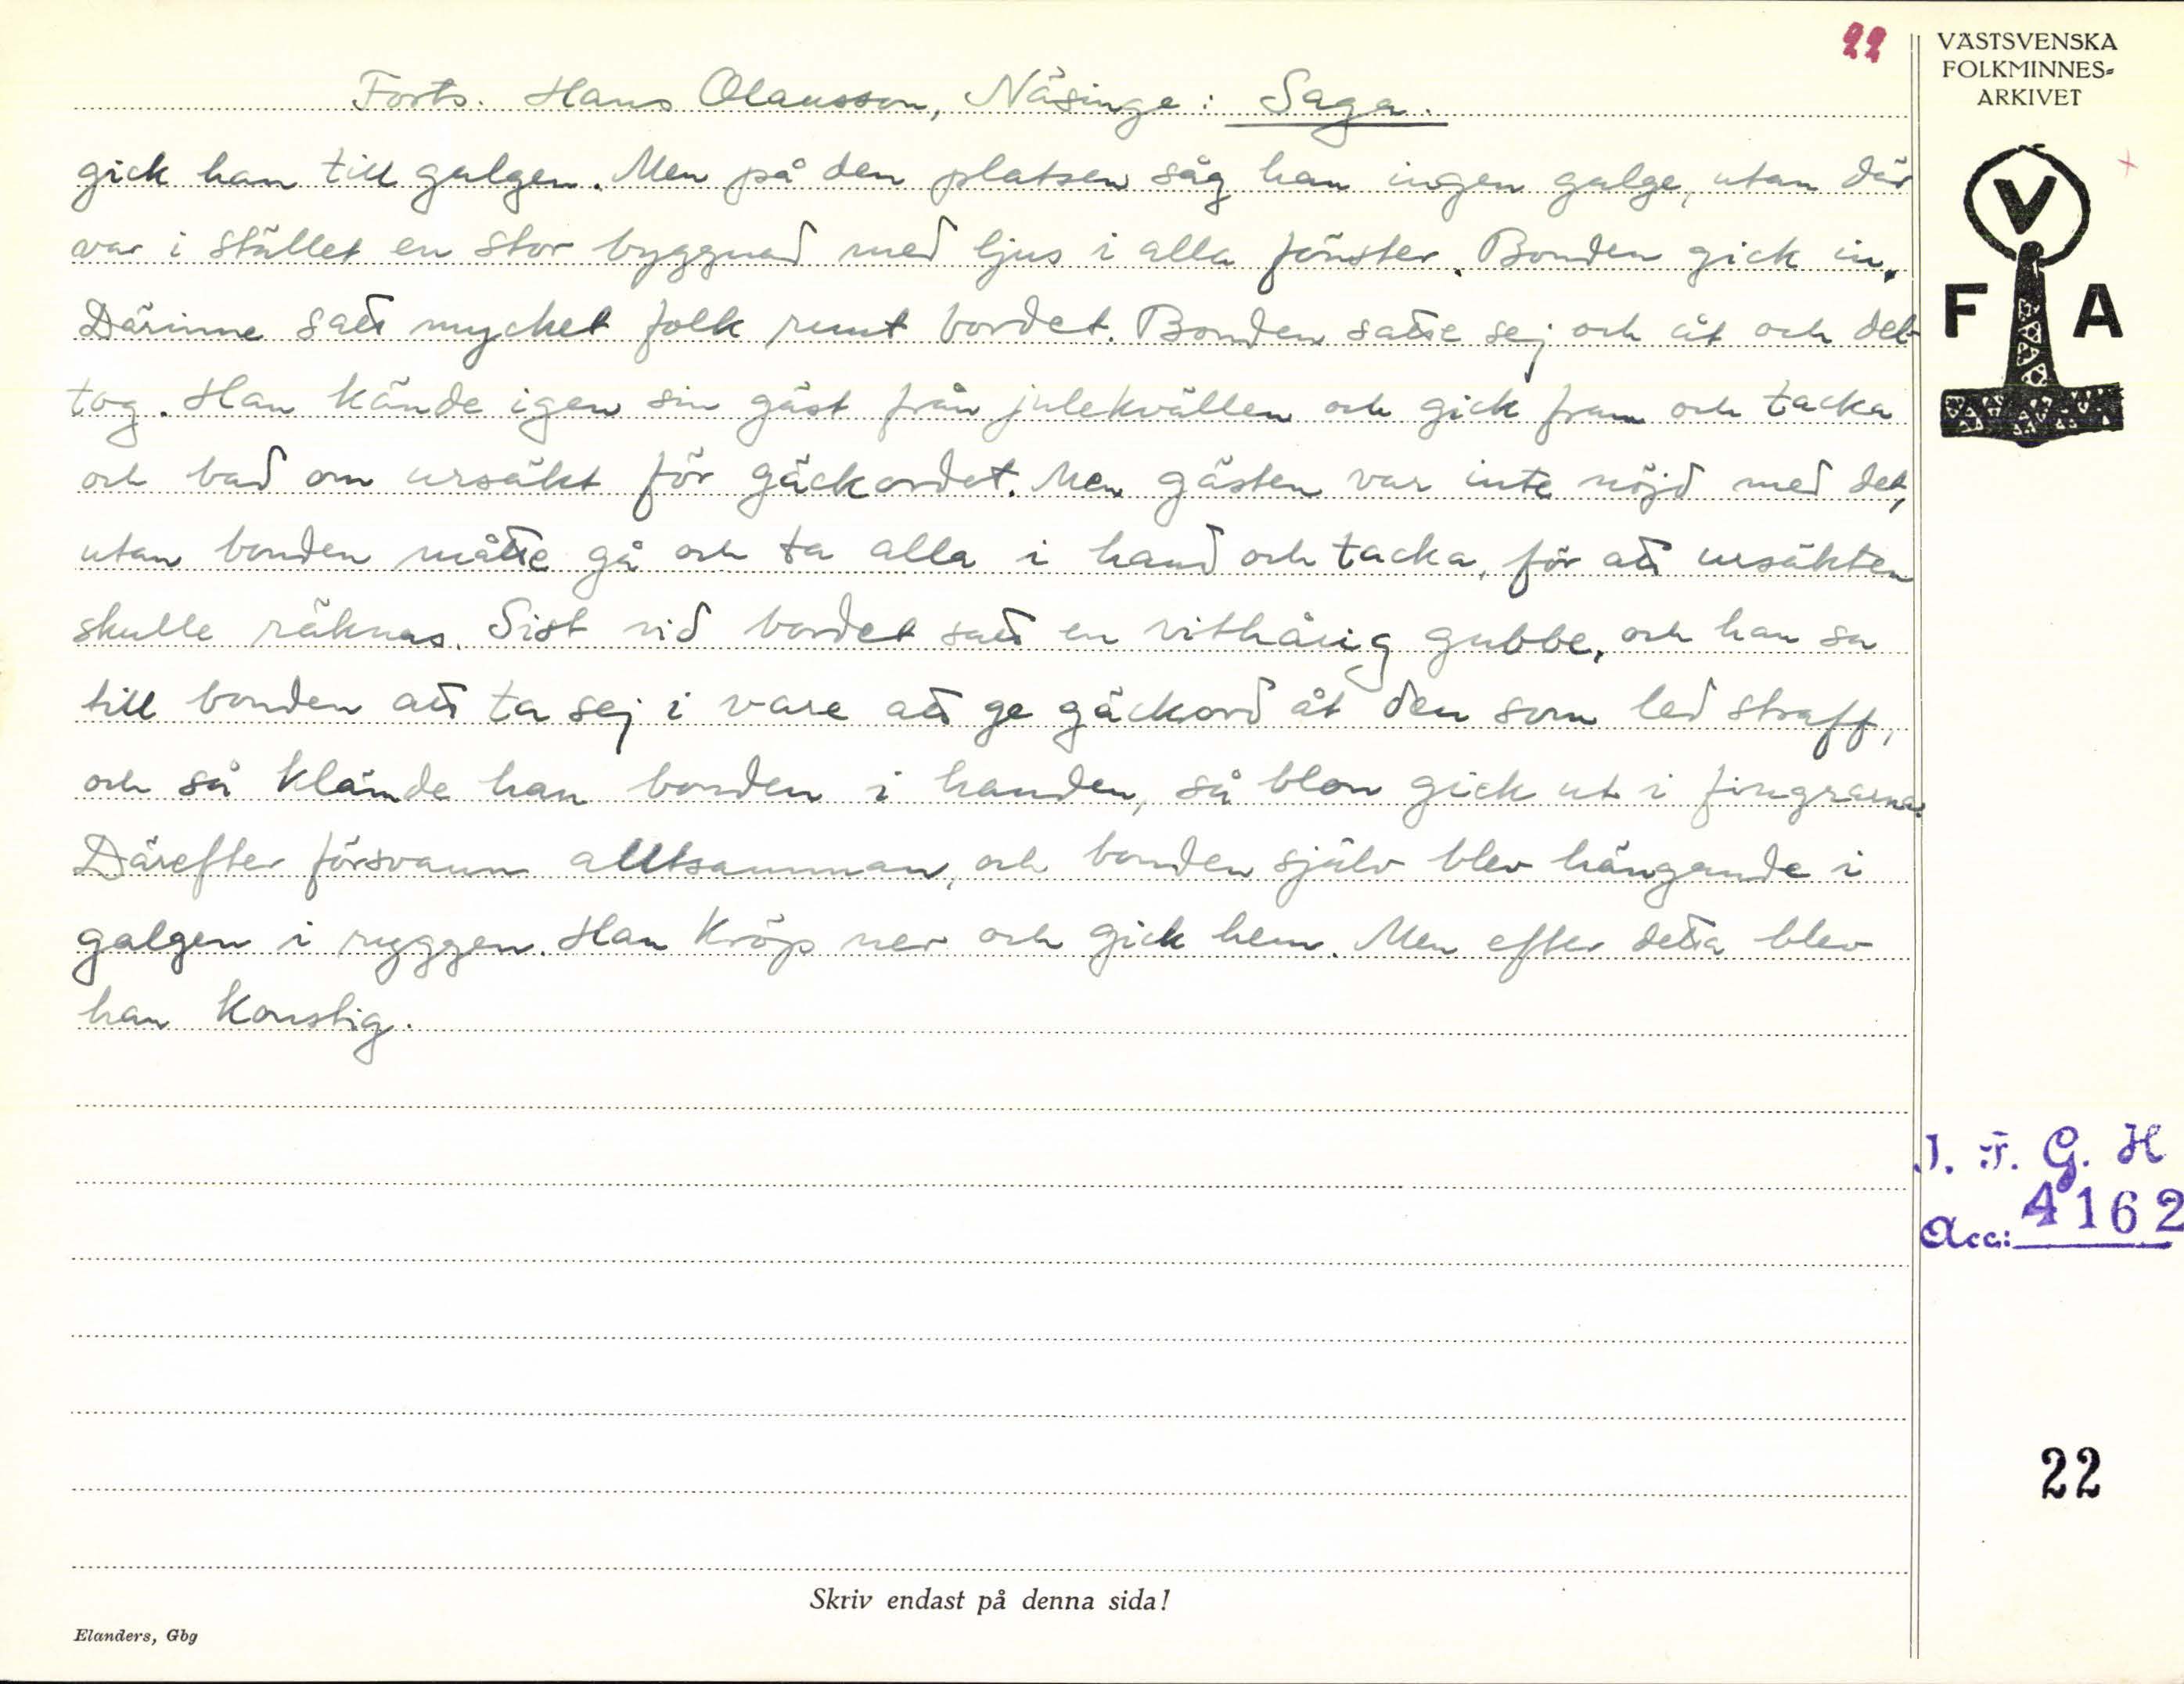 22
VÄSTSVENSKA
FOLKMINNES-
ARKIVET
Forts. Hans Olausson, Näsinge: Saga.
gick han till galgen. Men på den platsen såg han ingen galge, utan där
var i stället en stor byggnad med ljus i alla fönster. Bonden gick in.
Därinne satt mycket folk runt bordet. Bonden satte sej och åt och del-
tog. Han kände igen sin gäst från julekvällen och gick fram och tacka
och bad om ursäkt för gäckordet. Men gästen var inte nöjd med det,
utan bonden måtte gå och ta alla i hand och tacka, för att ursäkten
skulle räknas. Sist vid bordet satt en vithårig gubbe, och han sa
till bonden att ta sej i vare att ge gäckord åt den som led straff,
och så klämde han bonden i handen, så blon gick ut i fingrarna.
Därefter försvann alltsamman, och bonden själv blev hängande i
galgen i ryggen. Han kröp ner och gick hem. Men efter detta blev
han konstig.
V
F A
I. F. G. H
Acc: 4162
22
Skriv endast på denna sida!
Elanders, Gbg